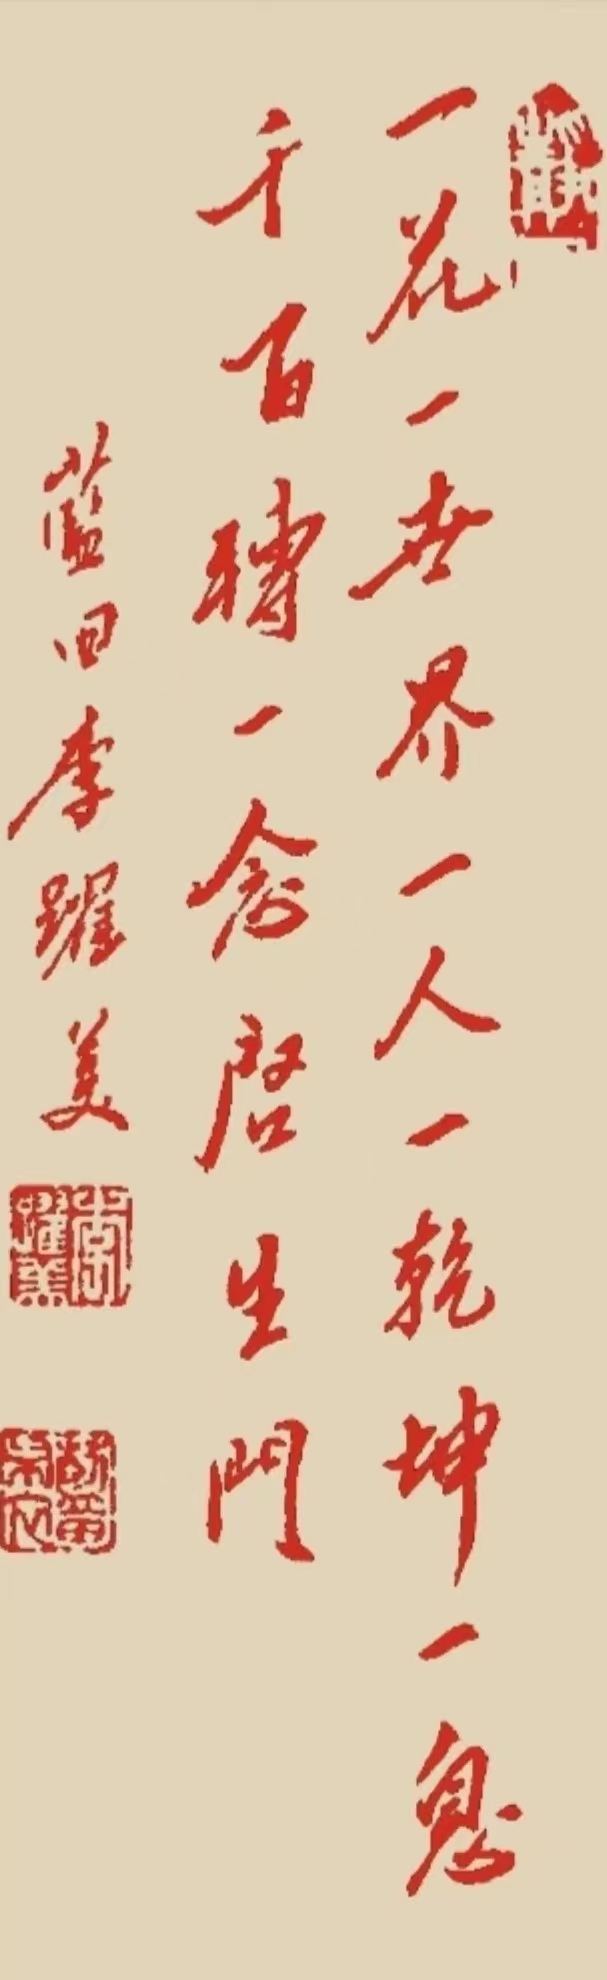 一花一世界一人一乾坤一息
千百轉一念啓生門
藍田李躍美
李躍美